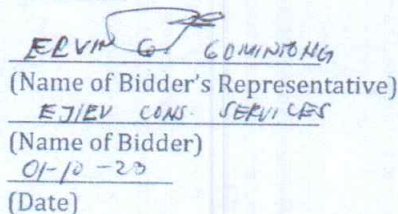 ERVIN G. GOMINTONG
(Name of Bidder's Representative)
EJIEV CONS. SERVICES
(Name of Bidder)
01-10-23
(Date)